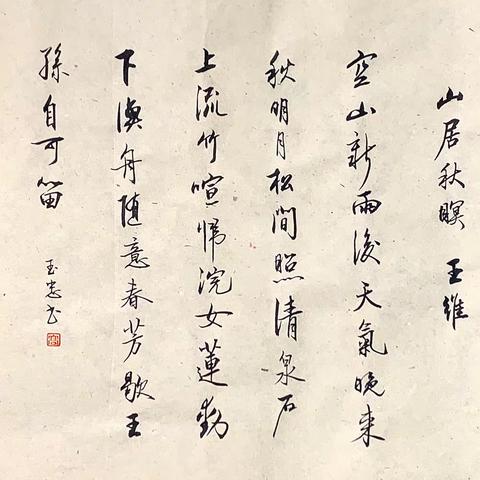 山居秋暝 王維
空山新雨後天氣晚来
秋明月松澗照清泉石
上流竹喧歸浣女蓮動
下漁舟随意春芳歇王
孫自可留
玉忠书